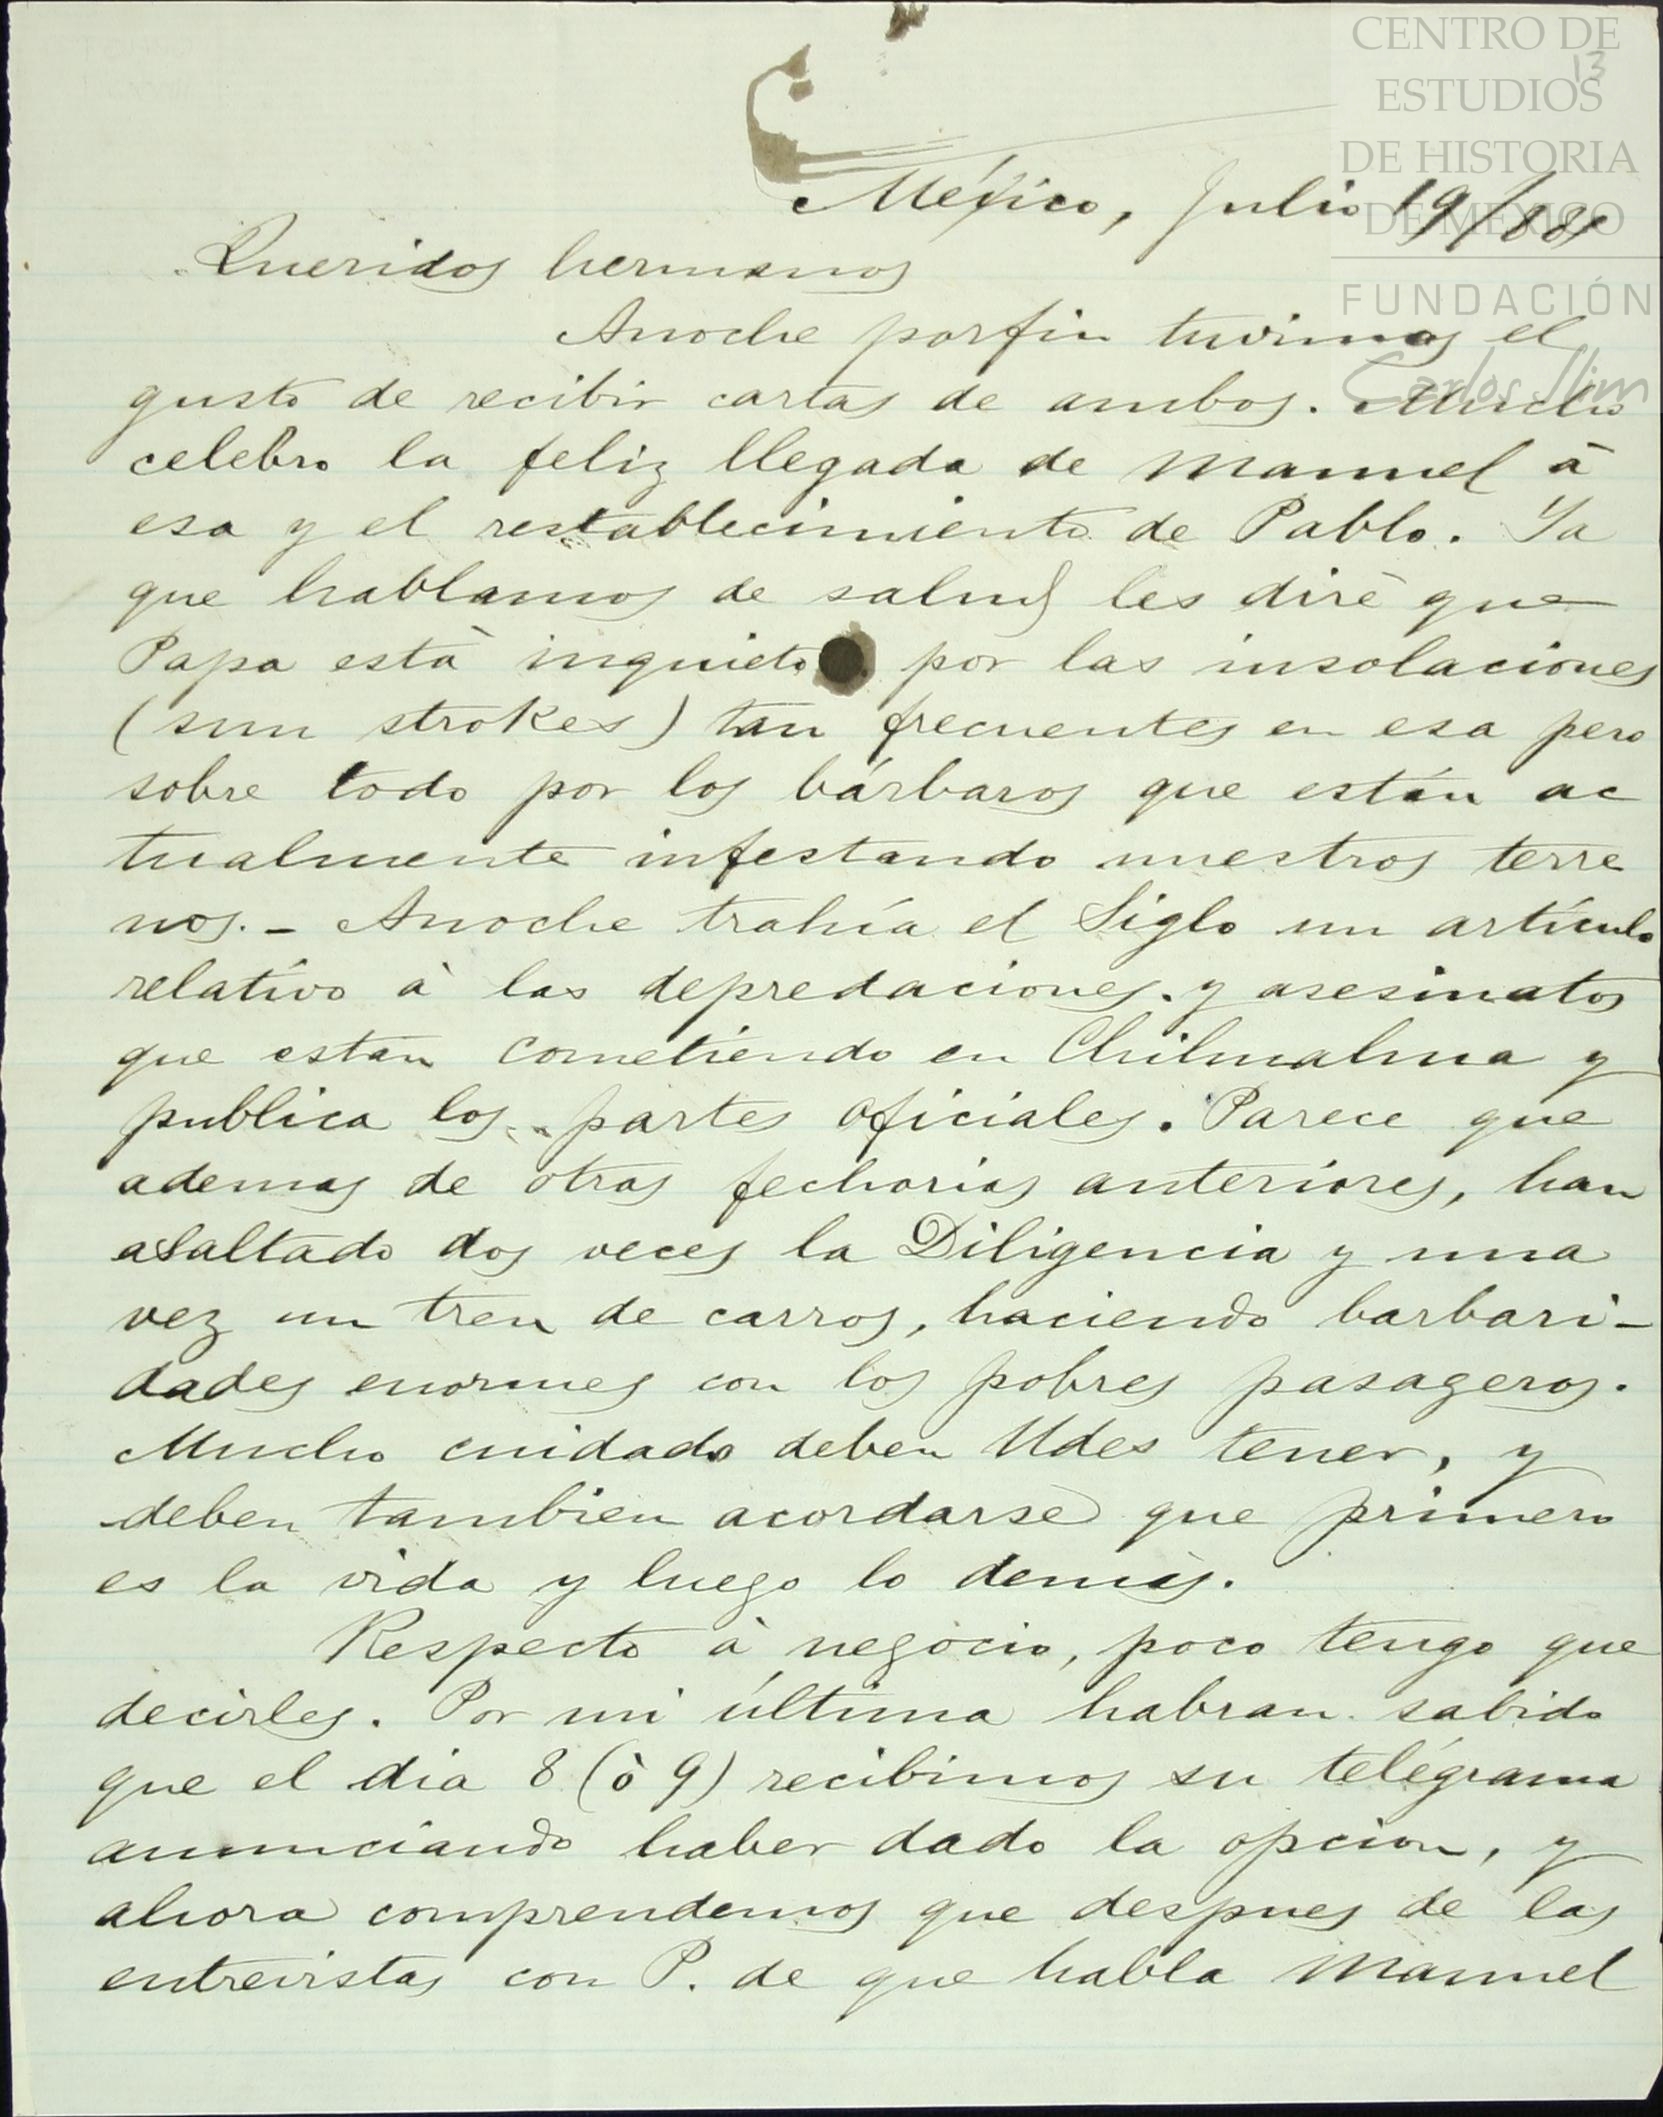 CENTRO DE
ESTUDIOS
DE HISTORIA
DE MEXICO
FUNDACIÓN
Carlos Slim
13
México, Julio 19/
Queridos hermanos
Anoche porfin tuvimos el
gusto de recibir cartas de ambos. Mucho
celebro la feliz llegada de Manuel à
esa y el restablecimiento de Pablo. Ya
que hablamos de salud les diré que
Papa está inquieto por las insolaciones
(sun strokes) tan frecuentes en esa pero
sobre todo por los bárbaros que están ac
tualmente infestando nuestros terre
nos. - Anoche trahía el Siglo un artículo
relativo à las depredaciones y asesinatos
que estan cometiendo en Chihuahua y
publica los partes oficiales. Parece que
ademas de otras fechorias anteriores, han
asaltado dos veces la Diligencia y una
vez un tren de carros, haciendo barbari-
dades enormes con los pobres pasageros.
Mucho cuidado deben Udes tener, y
deben tambien acordarse que primero
es la vida y luego lo demás.
Respecto à negocio, poco tengo que
decirles. Por mi última habran sabido
que el dia 8 (ò 9) recibimos su telégrama
anunciando haber dado la opcion, y
ahora comprendemos que despues de las
entrevistas con P. de que habla Manuel